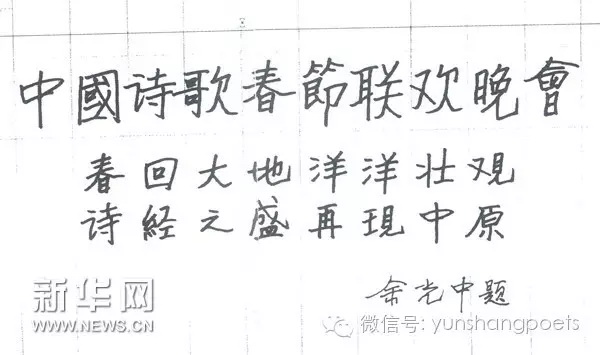 中國诗歌春節联欢晚會
春回大地洋洋壮观
诗経之盛再現中原
余光中题
新华网
WWW.NEWS.CN
微信号: yunshangpoets